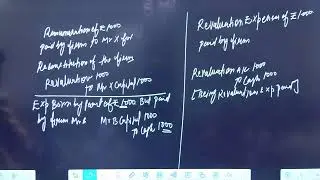 Remuneration of ₹ 1000
paid by firm to Mr X for
Reconstitution of the firm
Revaluation 1000
To Mr X Capital 1000
Exp Born by partner of ₹ 1000 But paid
by firm Mr B
Mr B Capital 1000
To Cash 1000
Revaluation Expenses of ₹ 1000
paid by firm
Revaluation A/c 1000
To Cash 1000
[Being Revaluation exp paid]